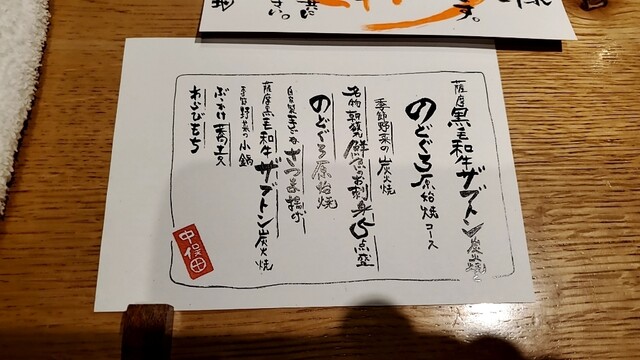 薩摩黒毛和牛ザブトン炭火焼と
のどぐろ原始焼コース
季節野菜の炭火焼
名物 朝〆鮮魚のお刺身5点盛
のどぐろ原始焼
自家製手造りさつま揚げ
薩摩黒毛和牛ザブトン炭火焼
季節野菜の小鍋
ぶっかけ蕎麦
わらびもち
中俣田